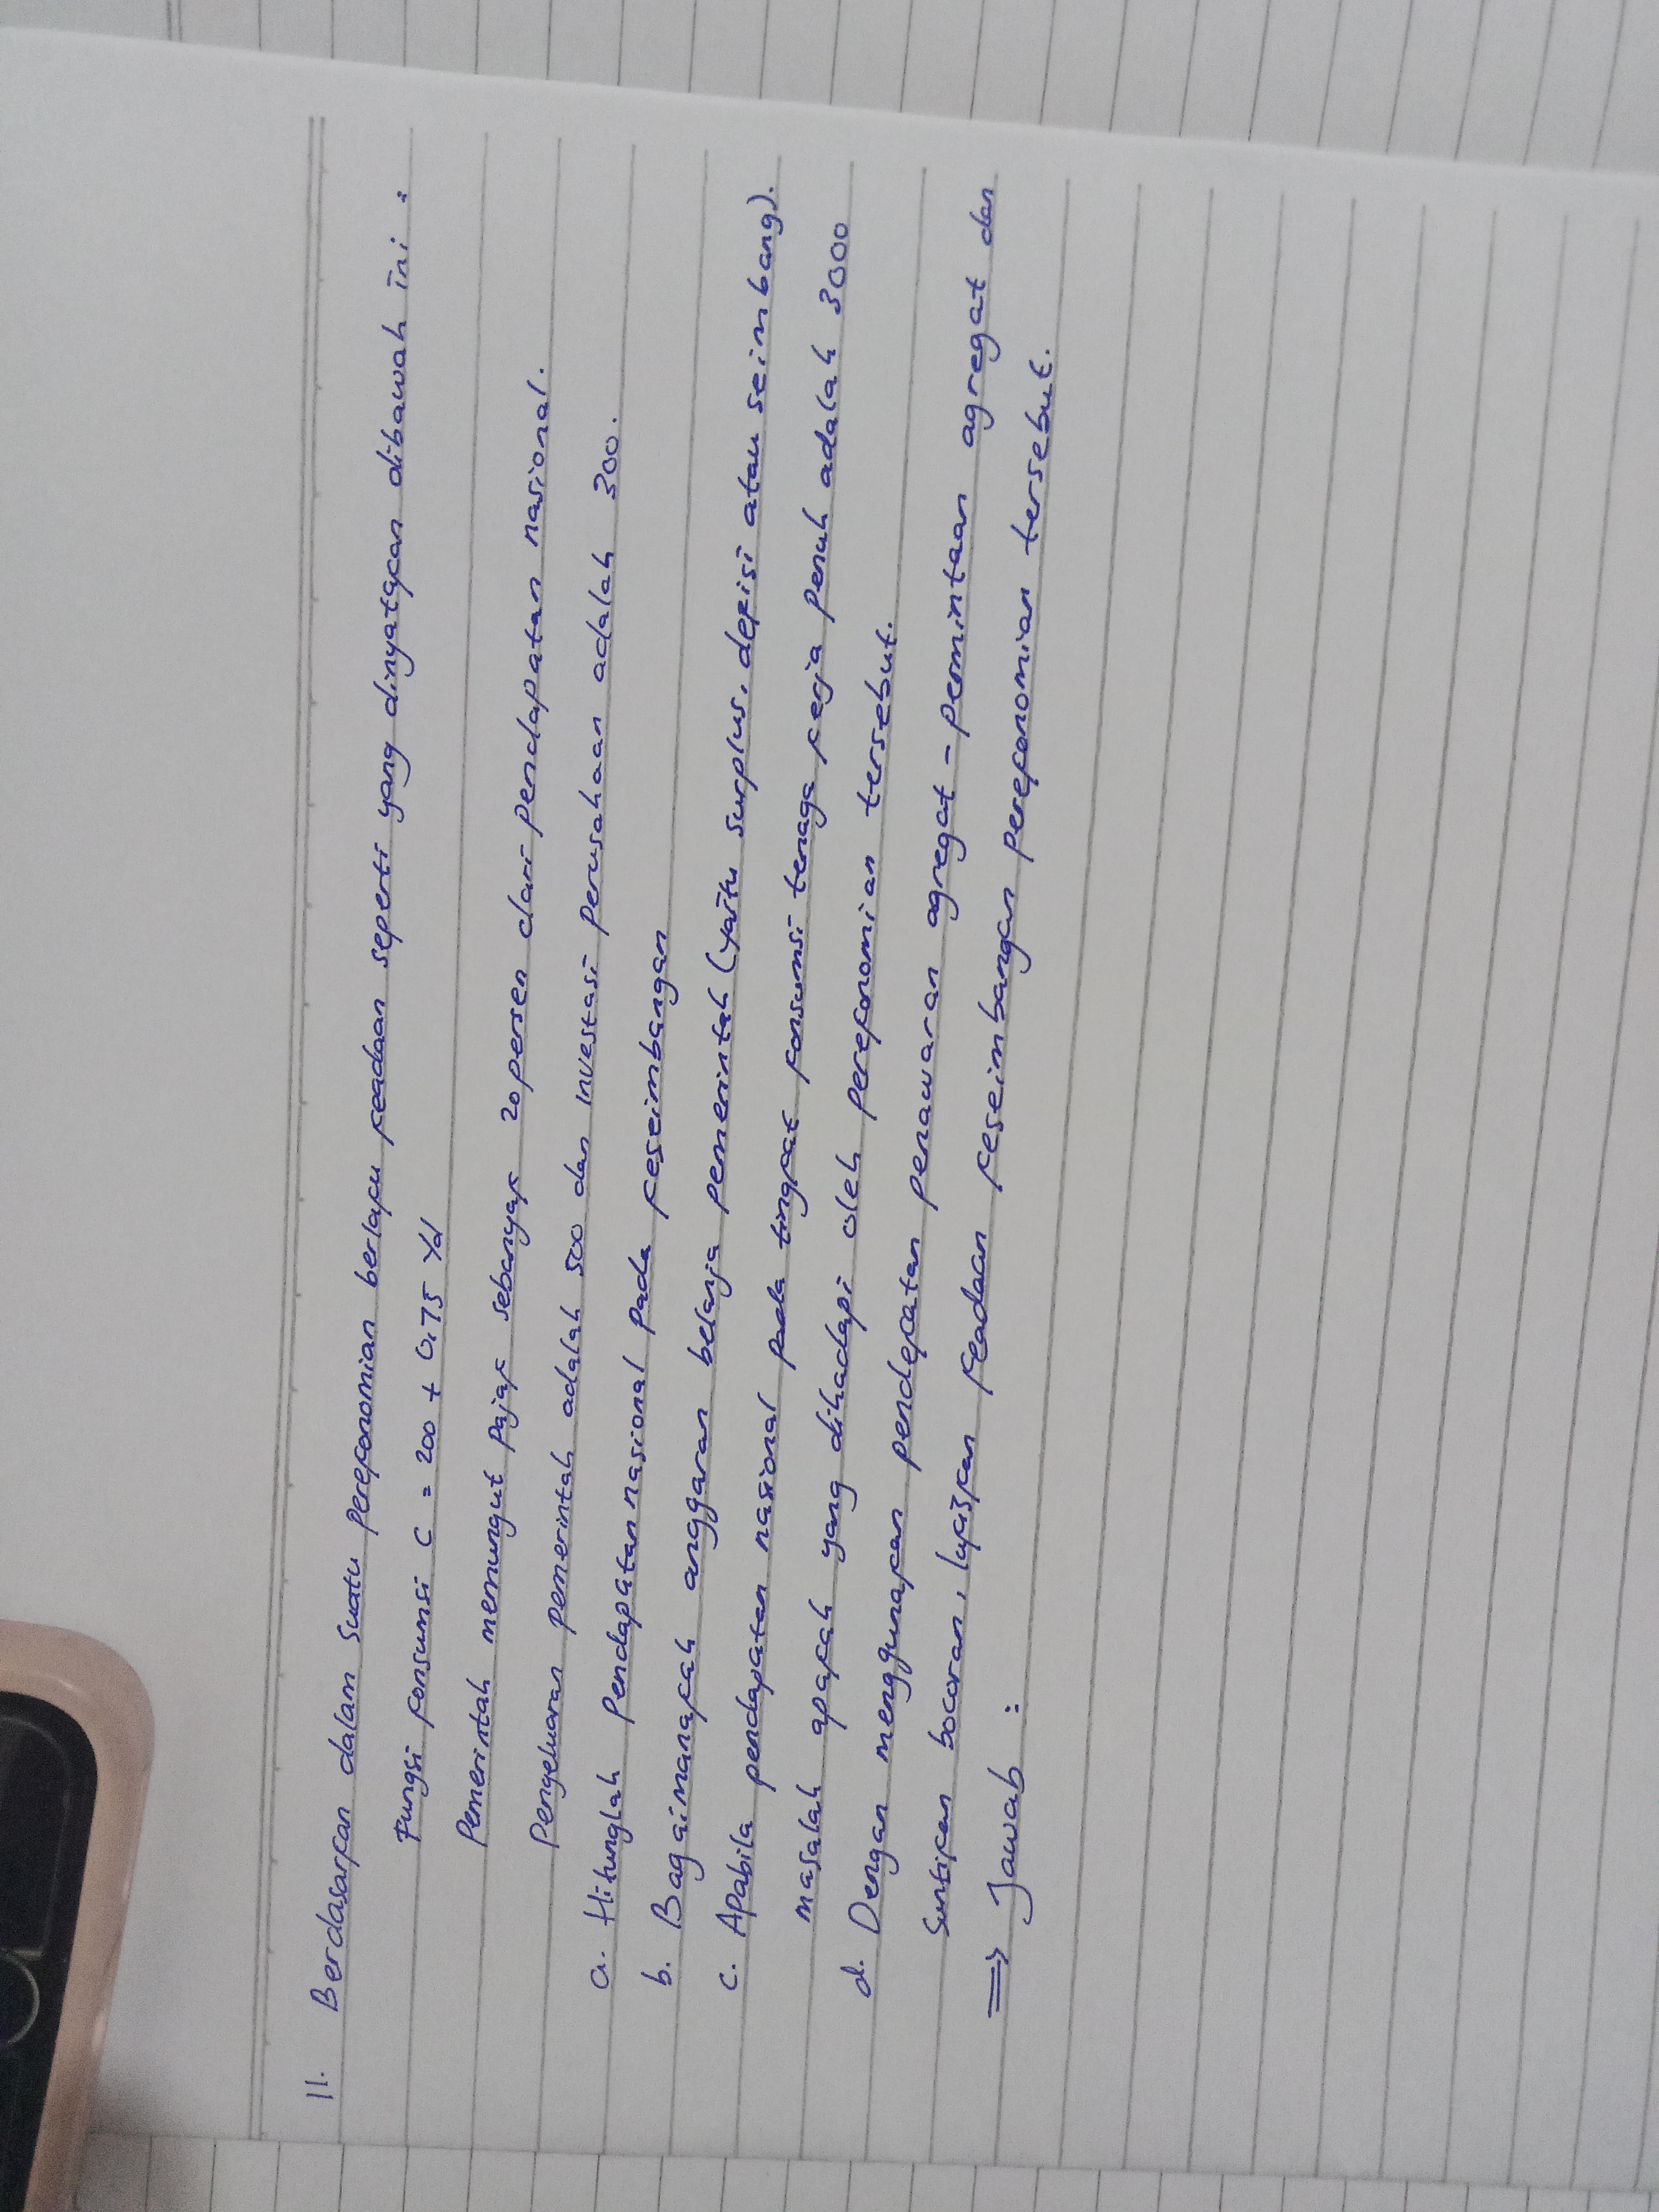 11. Berdasarkan dalam suatu perekonomian berlaku keadaan seperti yang dinyatakan dibawah ini :
Fungsi konsumsi C = 200 + 0,75 Yd
Pemerintah memungut Pajak sebanyak 20 persen dari pendapatan nasional.
Pengeluaran pemerintah adalah 500 dan investasi perusahaan adalah 300.
a. Hitunglah Pendapatan nasional pada keseimbangan
b. Bagaimanakah anggaran belanja pemerintah (yaitu surplus, depisi atau seimbang).
c. Apabila pendapatan nasional pada tingkat konsumsi tenaga kerja penuh adalah 3000
masalah apakah yang dihadapi oleh perekonomian tersebut.
d. Dengan menggunakan pendekatan penawaran agregat - permintaan agregat dan
suntikan bocoran, lukiskan keadaan keseimbangan perekonomian tersebut.
⇒ Jawab :